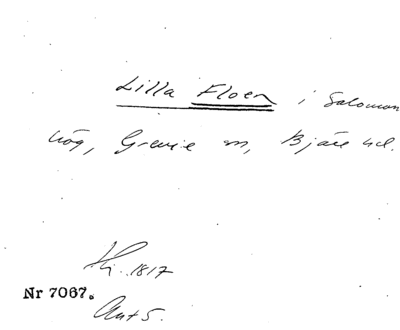 Lilla Floen i Salomon
hög, Grevie sn, Bjäre hd.
Hi. 1817
Nr 7067.
Ant 5.